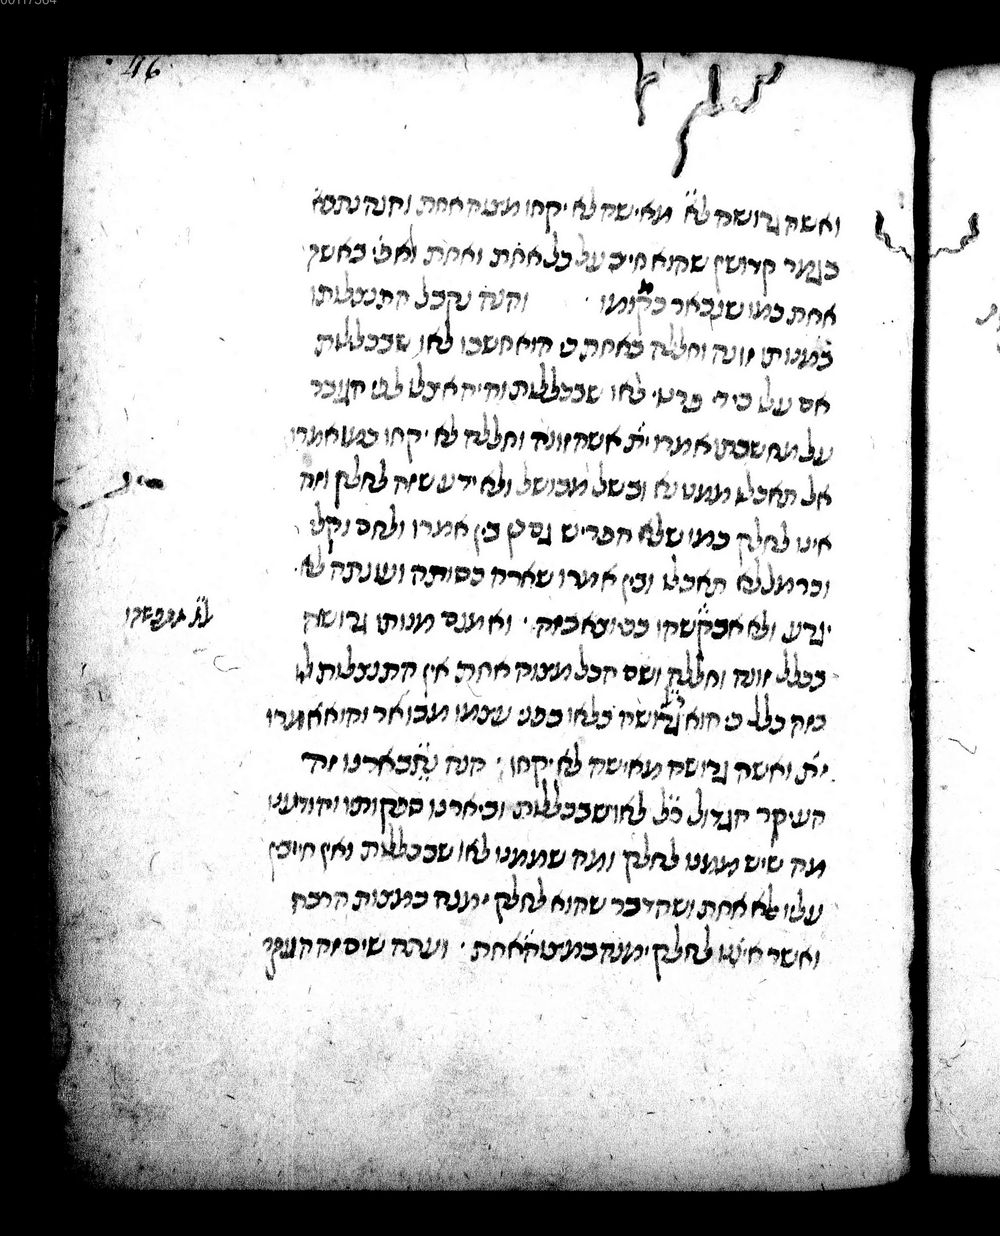 46
ואשה גרושה לא מאישה לא יקחו מצוה אחת והנה נתסא
בגמר קדושין שהוא חייב על כל אחת ואחת ולאפי באשך
אחת כמו שנבאר במקומו והנה נקבל התנצלותו
במנותו זונה וחללה באחת כי הוא חשבו לאו שבכללות
אם עלו בידי פרטי לאו שבכללות והיה אצלו לפי הנגבר
על מחשבתו אמרו ית אשה זונה וחללה לא יקחו כמו אמרו
אל תאכלו ממנו נא ובשל מבושל ולא ידע שזה לחלק וזה
אינו לחלק כמו שלא הפריש גם כן בין אמרו ולחם וקלי
וכרמל לא תאכלו ובין אמרו שארה כסותה ועונתה לא
יגרע ולא אבקשהו בכיוצא בזה ואמנם מנותו גרושה
בכלל זונה וחללה ושם הכל מצוה אחת אין התנצלות לו
בזה כלל כי הוא גרושה בלאו בפני עצמו מבואר והוא אמרו
ית ואשה גרושה מאישה לא יקחו הנה נתבארנו זה
העיקר הגדול כל לאו שבכללות וביארנו ספקותיו והודענו
מה שיש ממנו לחלק ומה שממנו לאו שבכללות ואין חייבין
עליו אלא אחת ושהדבר שהוא לחלק ימנה במצות הרבה
ואשר אינו לחלק ימנה במצוה אחת ועתה שים זה העקר